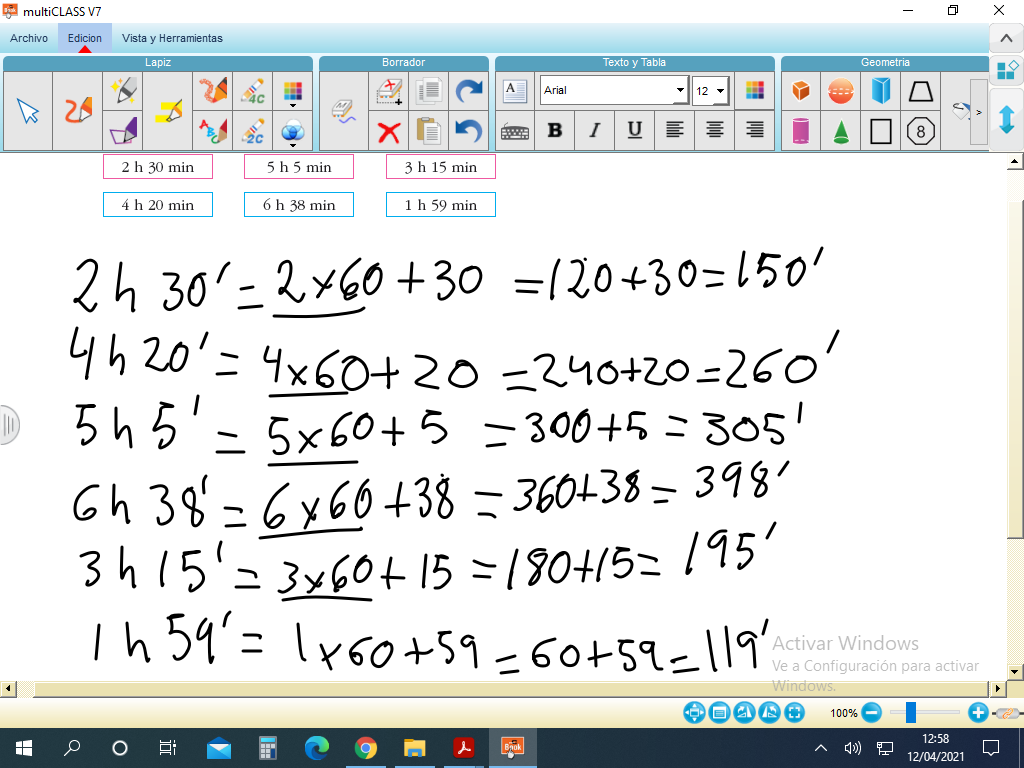 multiCLASS V7
Archivo Edicion Vista y Herramientas
Lapiz Borrador Texto y Tabla Geometria
4C A Arial 12
A B 2C B I U 8
2 h 30 min 5 h 5 min 3 h 15 min
4 h 20 min 6 h 38 min 1 h 59 min
2 h 30' = 2 x 60 + 30 = 120 + 30 = 150'
4 h 20' = 4 x 60 + 20 = 240 + 20 = 260'
5 h 5' = 5 x 60 + 5 = 300 + 5 = 305'
6 h 38' = 6 x 60 + 38 = 360 + 38 = 398'
3 h 15' = 3 x 60 + 15 = 180 + 15 = 195'
1 h 59' = 1 x 60 + 59 = 60 + 59 = 119'
Activar Windows
Ve a Configuración para activar
Windows.
100%
Book
12:58
12/04/2021